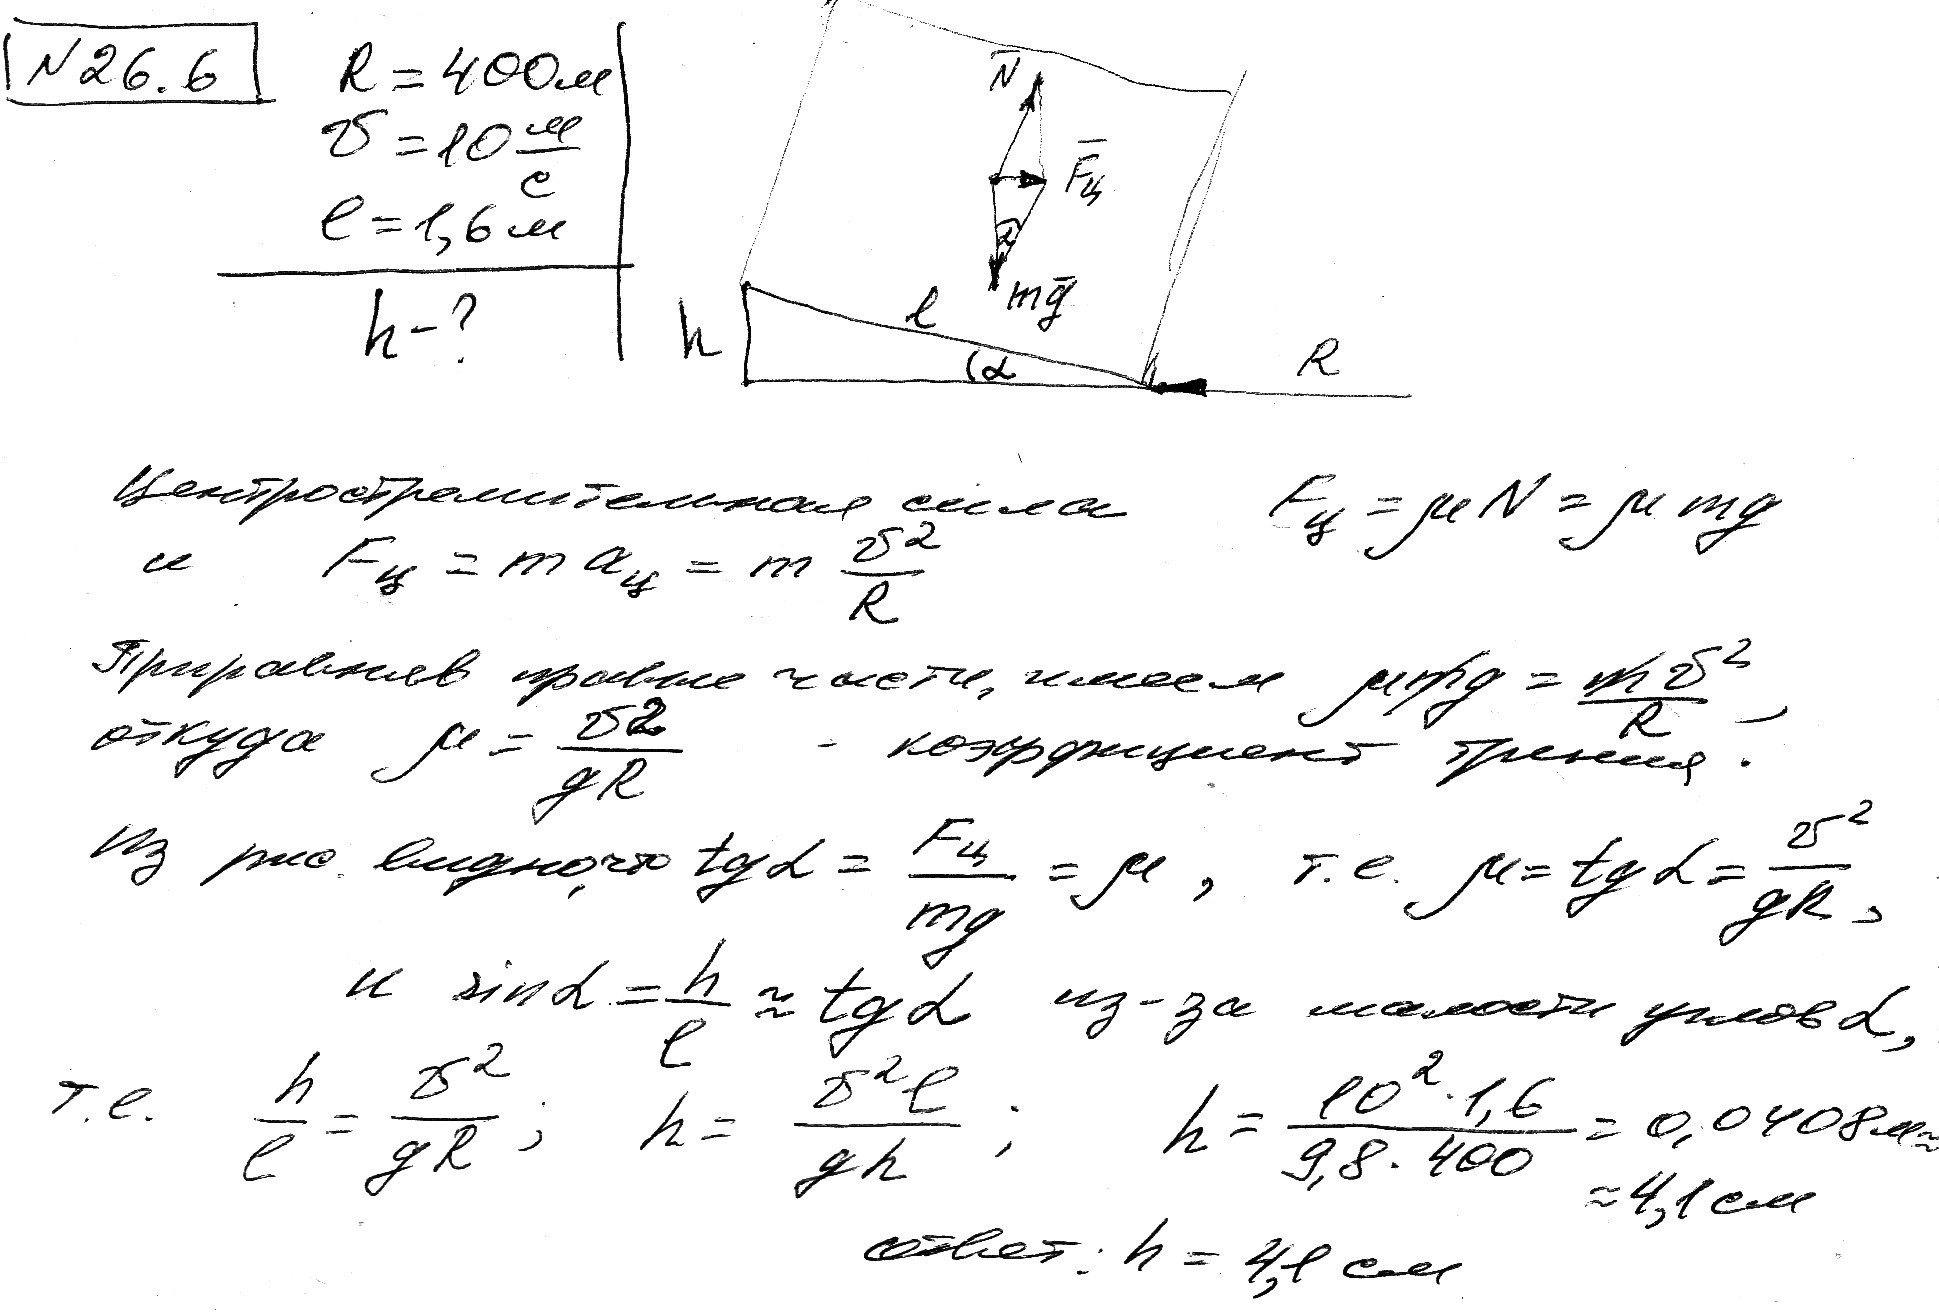 N26.6
R = 400 м
υ = 10 м/с
l = 1,6 м
h - ?
N̄
F̄ц
α
mḡ
h
l
α
R
Центростремительная сила Fц = μN = μmg
и Fц = m aц = m υ²/R
Приравняв правые части, имеем μmg = mυ²/R,
откуда μ = υ²/gR - коэффициент трения.
Из рис. видно, что tgα = Fц/mg = μ, т.е. μ = tgα = υ²/gR,
и sinα = h/l ≈ tgα из-за малости углов α,
т.е. h/l = υ²/gR; h = υ²l/gh; h = 10²·1,6/9,8·400 = 0,0408 м ≈
≈ 4,1 см
ответ: h = 4,1 см